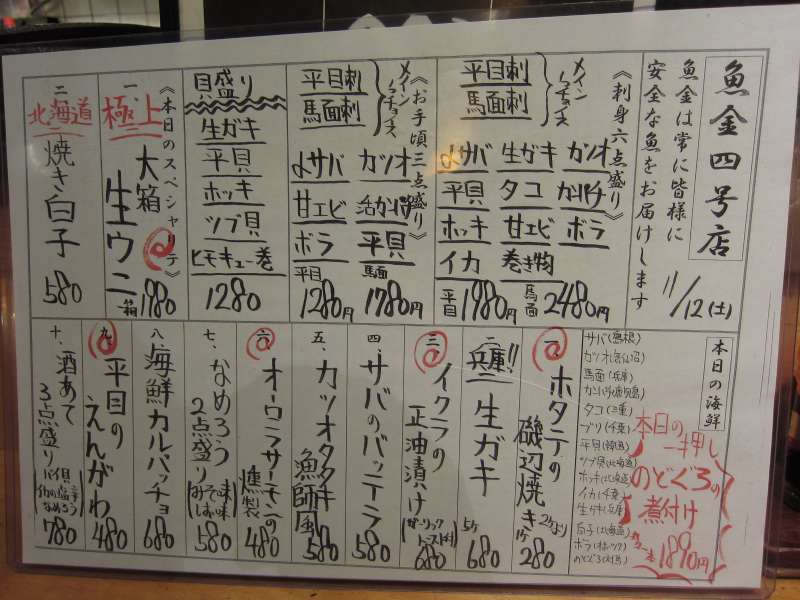 魚金四号店
魚金は常に皆様に
安全な魚をお届けします
11/12(土)
《刺身六点盛り》
メインをチョイス
平目刺
馬面刺
〆サバ 生ガキ カツオ
平貝 タコ カンパチ
ホッキ 甘エビ ボラ
イカ 巻き物
平目 1980円
馬面 2480円
《お手頃三点盛り》
メインをチョイス
平目刺
馬面刺
〆サバ カツオ
甘エビ
ボラ 平貝
平目 1280円
馬面 1780円
貝盛り
生ガキ
平貝
ホッキ
ツブ貝
ヒモキュー巻
1280
《本日のスペシャリテ》
一、極上
大箱
生ウニ
一箱 1980
二、北海道
焼き白子
580
本日の海鮮
サバ(島根)
カツオ(気仙沼)
馬面(兵庫)
カンパチ(鹿児島)
タコ(三重)
ブリ(千葉)
平貝(韓国)
ツブ貝(北海道)
ホッキ(北海道)
イカ(千葉)
生ガキ(兵庫)
白子(北海道)
本日の一押し
のどぐろの
煮付け
1890円
一、ホタテの
磯辺焼き
1ケ 280
兵庫!!
二、生ガキ
680
三、イクラの
正油漬け
(ガーリックトースト付)
680
四、サバのバッテラ
580
五、カツオタタキ
漁師風
580
六、オーロラサーモンの
燻製
480
七、なめろう
2点盛り
(みそ味
しお味)
580
八、海鮮カルパッチョ
680
九、平目の
えんがわ
480
十、酒あて
3点盛り
780